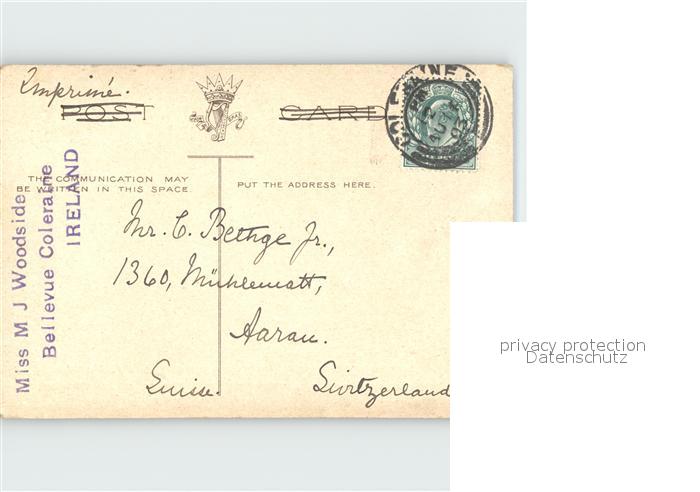 Imprimé.
POST CARD
COLERAINE
THE COMMUNICATION MAY
BE WRITTEN IN THIS SPACE.
PUT THE ADDRESS HERE.
Miss M J Woodside
Bellevue Coleraine
IRELAND
Mr. C. Bethge Jr.,
1360, Mühlematt,
Aarau.
Suisse. Switzerland
privacy protection
Datenschutz